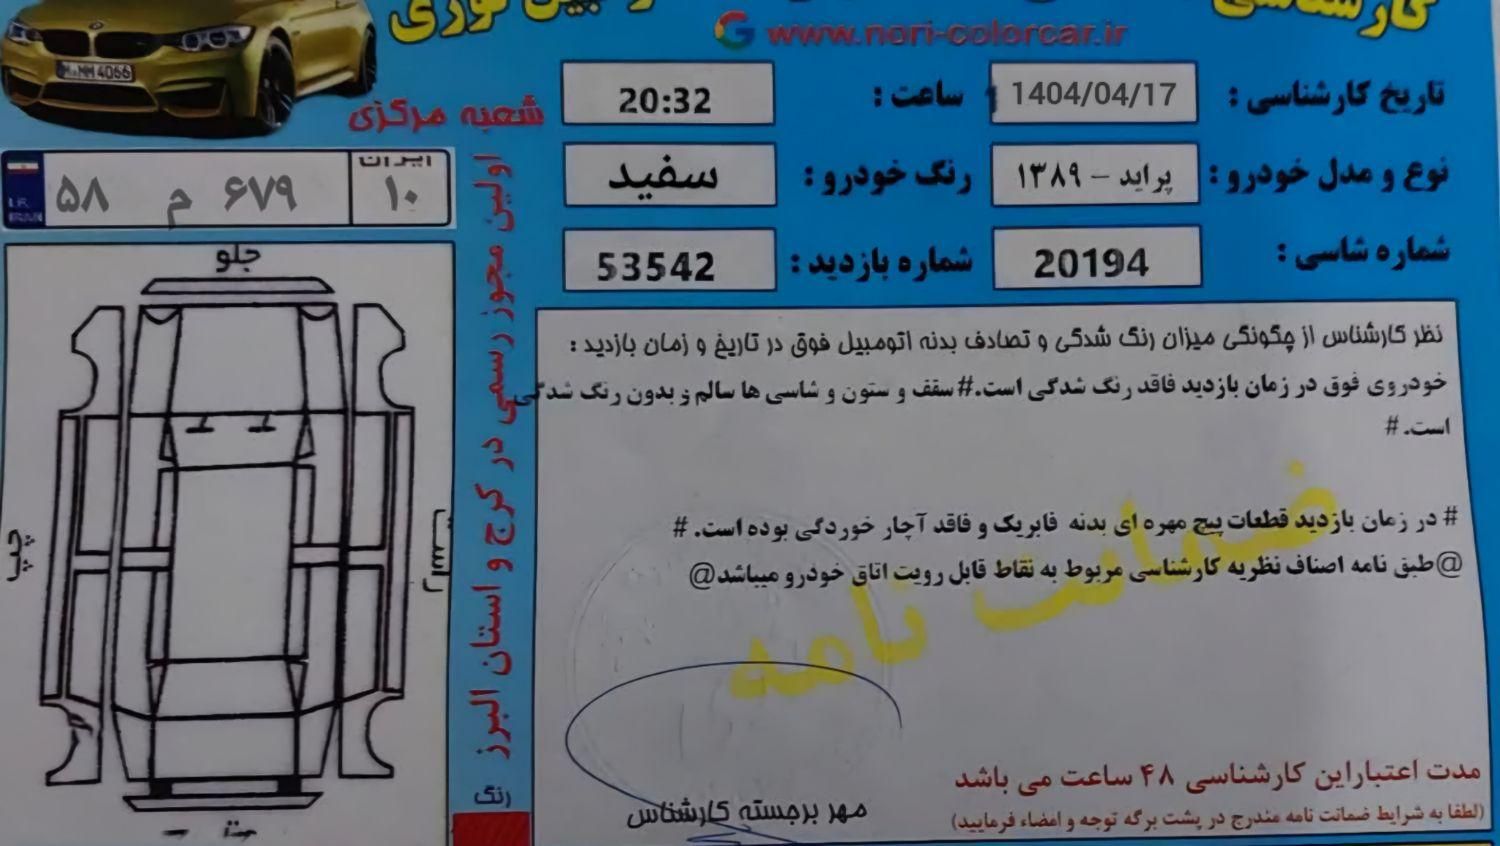 کارشناسی
بین نوری
www.nori-colorcar.ir
M MM 4066
شعبه مرکزی
تاریخ کارشناسی : 1404/04/17
ساعت : 20:32
نوع و مدل خودرو : پراید – ۱۳۸۹
رنگ خودرو : سفید
شماره شاسی : 20194
شماره بازدید : 53542
ایران
۵۸ م ۶۷۹ ۱۰
I.R.
IRAN
اولین مجوز رسمی در کرج و استان البرز
جلو
چپ
راست
رنگ
نظر کارشناس از چگونگی میزان رنگ شدگی و تصادف بدنه اتومبیل فوق در تاریخ و زمان بازدید :
خودروی فوق در زمان بازدید فاقد رنگ شدگی است.#سقف و ستون و شاسی ها سالم و بدون رنگ شدگی
است. #
# در زمان بازدید قطعات پیچ مهره ای بدنه فابریک و فاقد آچار خوردگی بوده است. #
@طبق نامه اصناف نظریه کارشناسی مربوط به نقاط قابل رویت اتاق خودرو میباشد@
ضمانت نامه
مهر برجسته کارشناس
مدت اعتباراین کارشناسی ۴۸ ساعت می باشد
(لطفا به شرایط ضمانت نامه مندرج در پشت برگه توجه و امضاء فرمایید)